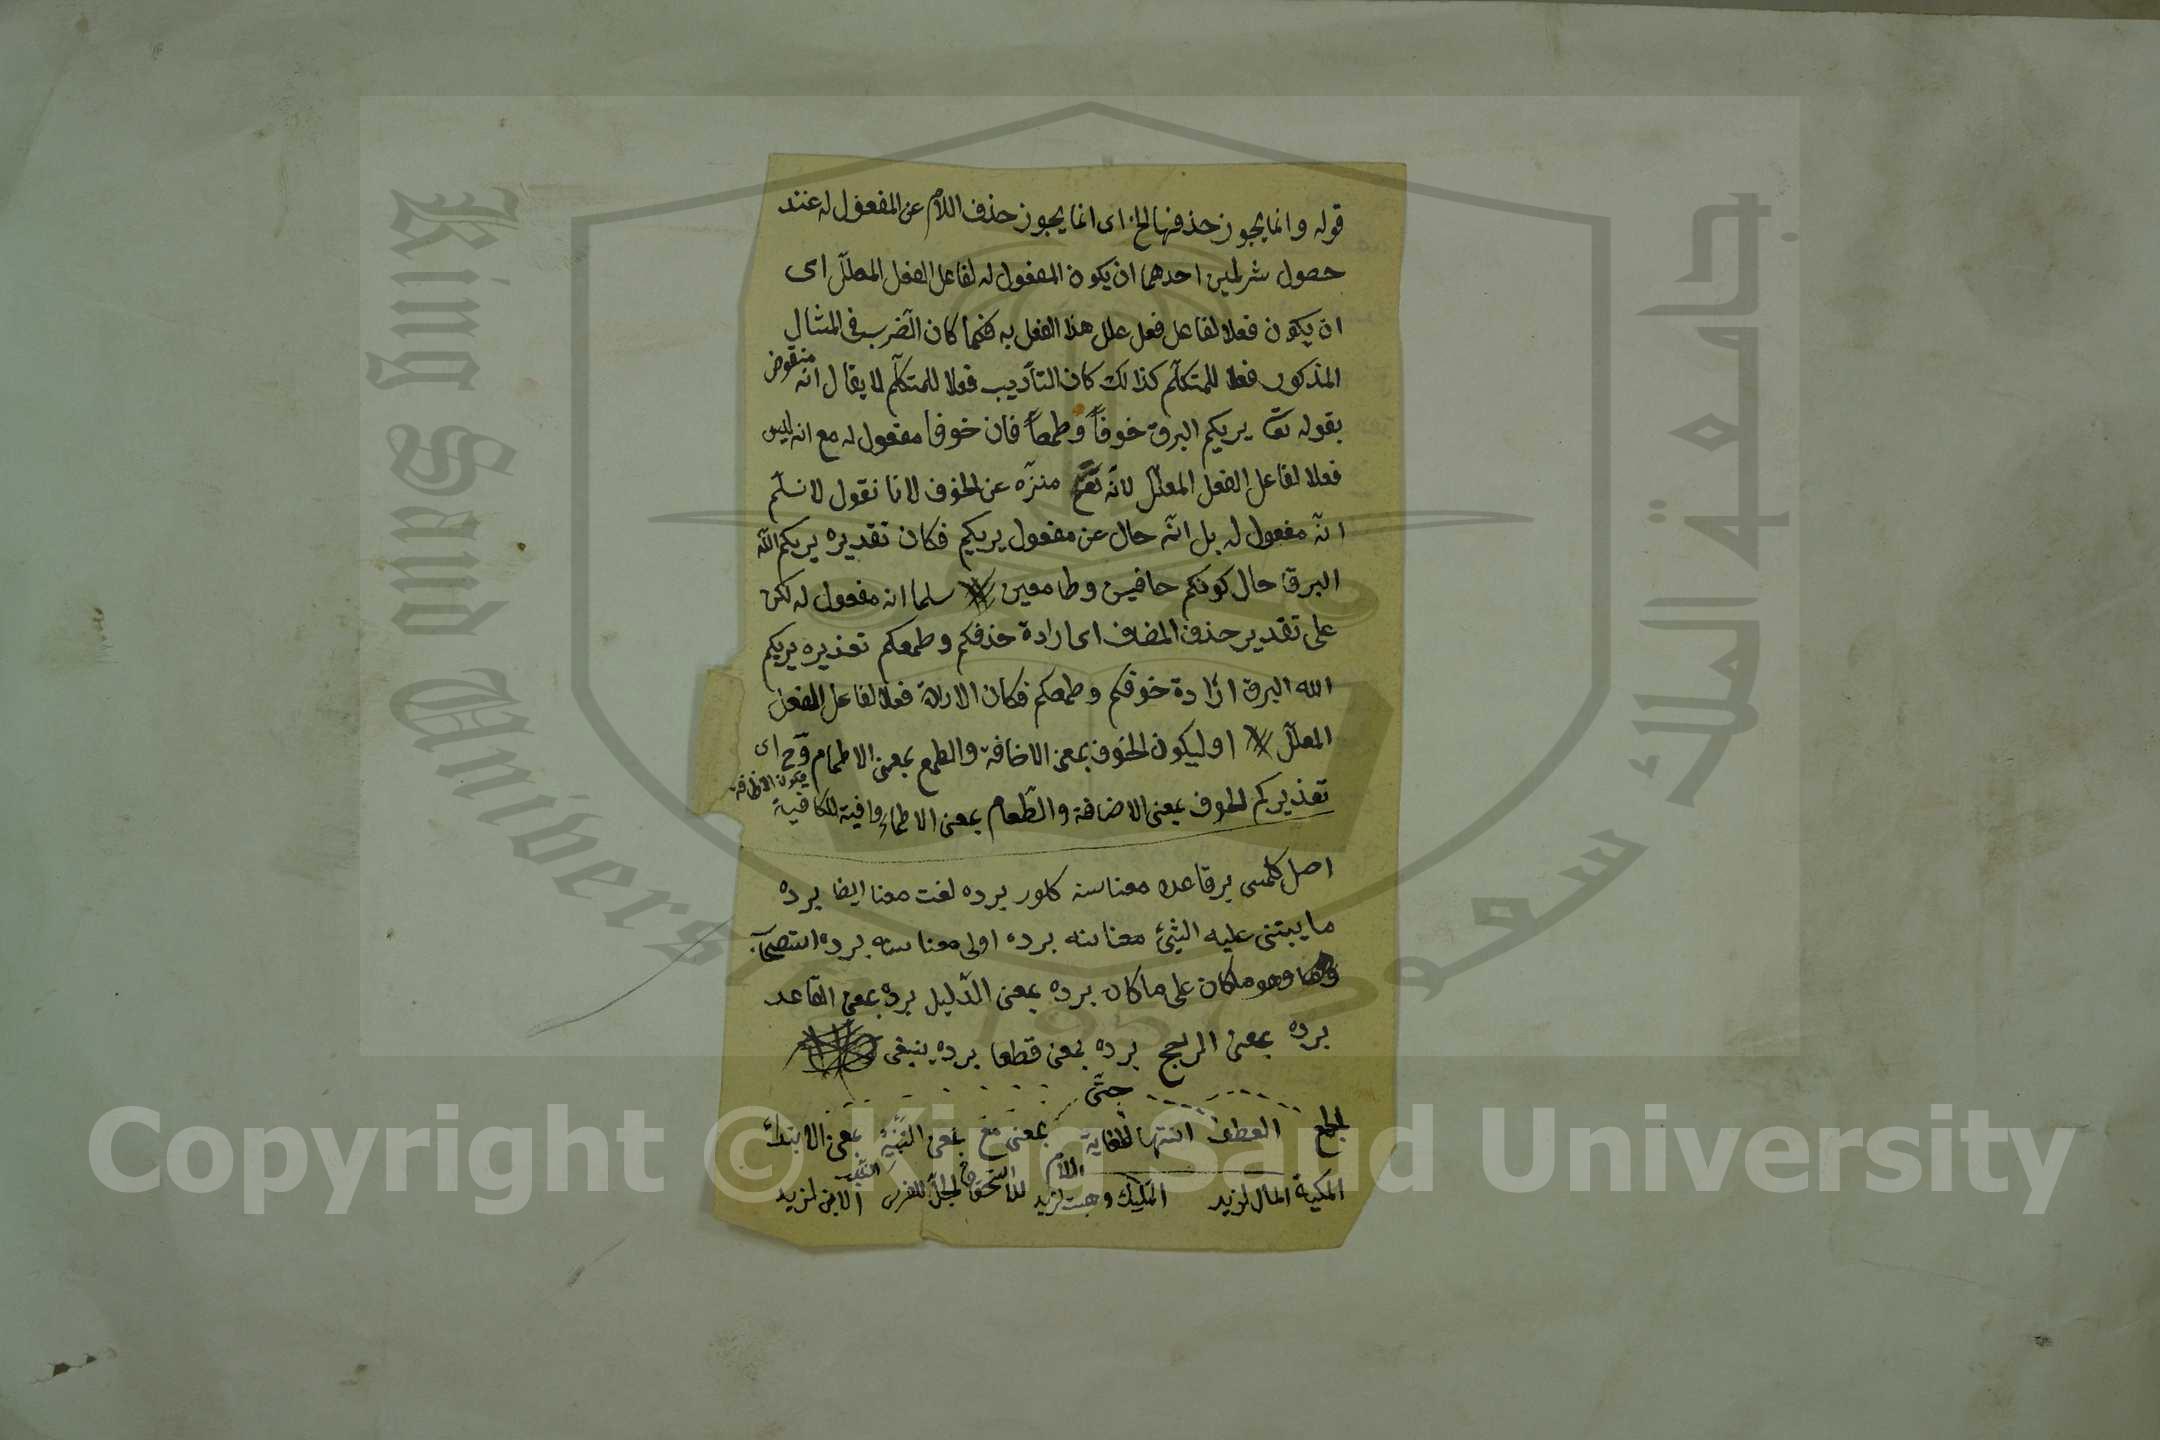 قوله وانما يجوز حذفها الخ اى انما يجوز حذف اللام عن المفعول له عند
حصول شرطين احدهما ان يكون المفعول له لفاعل الفعل المعلّل اى
ان يكون فعلا لفاعل فعل علل هذا الفعل به فكما كان الضرب فى المثال
المذكور فعلا للمتكلّم كذلك كان التأديب فعلا للمتكلّم لا يقال انه منقوض
بقوله تعا يريكم البرق خوفاً وطمعاً فان خوفا مفعول له مع انه ليس
فعلا لفاعل الفعل المعلّل لانّه تع منزّه عن الخوف لانا نقول لا نسلّم
انّه مفعول له بل انّه حال عن مفعول يريكم فكان تقديره يريكم اللّه
البرق حال كونكم خافين وطامعين سلما انه مفعول له لكن
على تقدير حذف المضاف اى ارادة خذفكم وطمعكم تقذيره يريكم
الله البرق ارادة خوفكم وطمعكم فكان الارادة فعلا لفاعل الفعل
المعلّل او ليكون الخوف بمعنى الاخافة والطمع بمعنى الاطماع اى
يكون الاخافة
تقذيركم الخوف بمعنى الاضافة والطّعام بمعنى الاطماع وافية للكافية
اصل كلمسى برقاعده معناسنه كلور برده لغت معنا ايضا برده
ما يبتنى عليه الشئ معناسنه برده اولى معناسنه برده استصحا
وهو ما كان على ما كان برده بمعنى الدّليل برده بمعنى القاعد
برده بمعنى المرجح برده بمعنى قطعا برده ينبغى
حتّى
الجمع العطف انتها الغاية بمعنى مع بمعنى بمعنى الابتداء
اللام
الملكية المال لزيد التمليك وهبت لزيد للاستحقاق الجلّ للفرس النسب الابن لزيد
Copyright © King Saud University
King Saud University
جامعة الملك سعود
1957